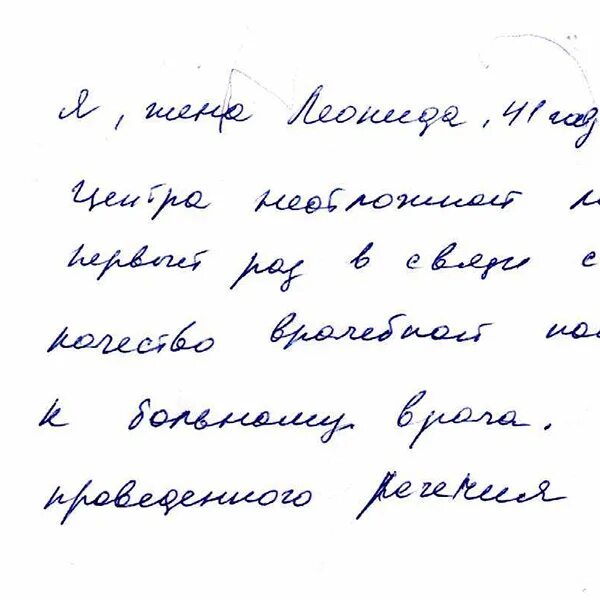 Я, жена Леонида, 41 год
Центра неотложной
первый раз в связи с
качество врачебной по
к больному врача.
проведенного лечения